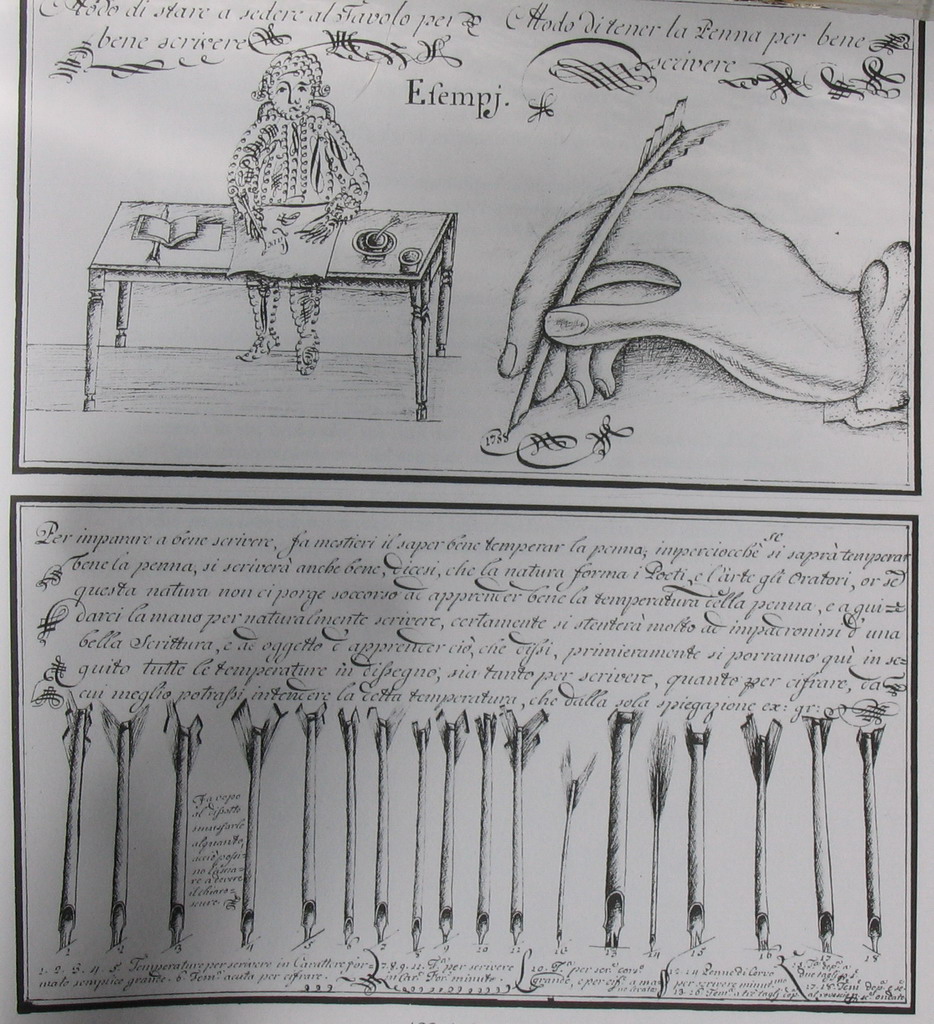 Modo di stare a sedere al Tavolo per
bene scrivere
Modo di tener la Penna per bene
scrivere
Esempj.
1788
Per imparare a bene scrivere, fa mestieri il saper bene temperar la penna; imperciocchè se si saprà temperar
bene la penna, si scriverà anche bene, dicesi, che la natura forma i Poeti, e l'arte gli Oratori, or se
questa natura non ci porge soccorso ad apprender bene la temperatura della penna, e a gui=
darci la mano per naturalmente scrivere, certamente si stenterà molto ad impadronirsi d'una
bella Scrittura, e ad oggetto d'apprender ciò, che dissi, primieramente si porranno quì in se=
guito tutte le temperature in dissegno, sia tanto per scrivere, quanto per cifrare, da
cui meglio potrassi intendere la detta temperatura, che dalla sola spiegazione ex: gr:
Fa vopo
al dissotto
alquanto,
acciò possi=
no lascia=
re a dovere
il chiaro=
scuro.
3 5 6 7 8 9 10 11 13 14 15 16 17 18
1. 2. 3. 4. 5. Temperature per scrivere in Carattere for=
mato semplice grande. 6. Tem.a acuta per cifrare.
7. 8. 9. 12. T.a per scrivere
in Car. For. minuto.
10. T.a per scr. cors.
grande, e per cif. a ma
14 Penne di Corvo
per scrivere minut.